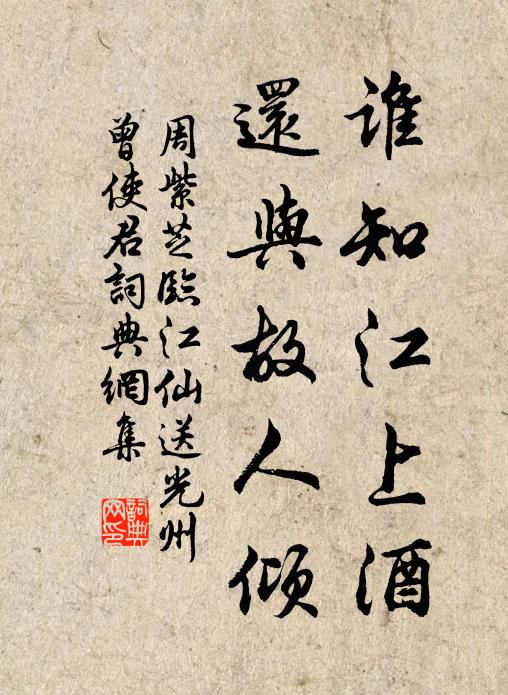 誰知江上酒
還與故人傾
周紫芝臨江仙送光州
曾使君詞典網集
詞典网印